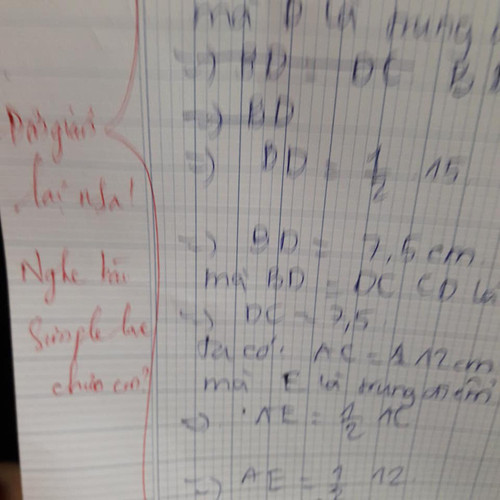 mà D là trung
=> BD = DC B
=> BD
=> BD = 1/2 15
=> BD = 7,5 cm
mà BD = DC CD là
=> DC = 7,5
Ta có: AC = 12 cm
mà E là trung điểm
=> AE = 1/2 AC
=> AE = 1/2 12
giải
lại nữa!
Nghe bài
Simple
chưa em?